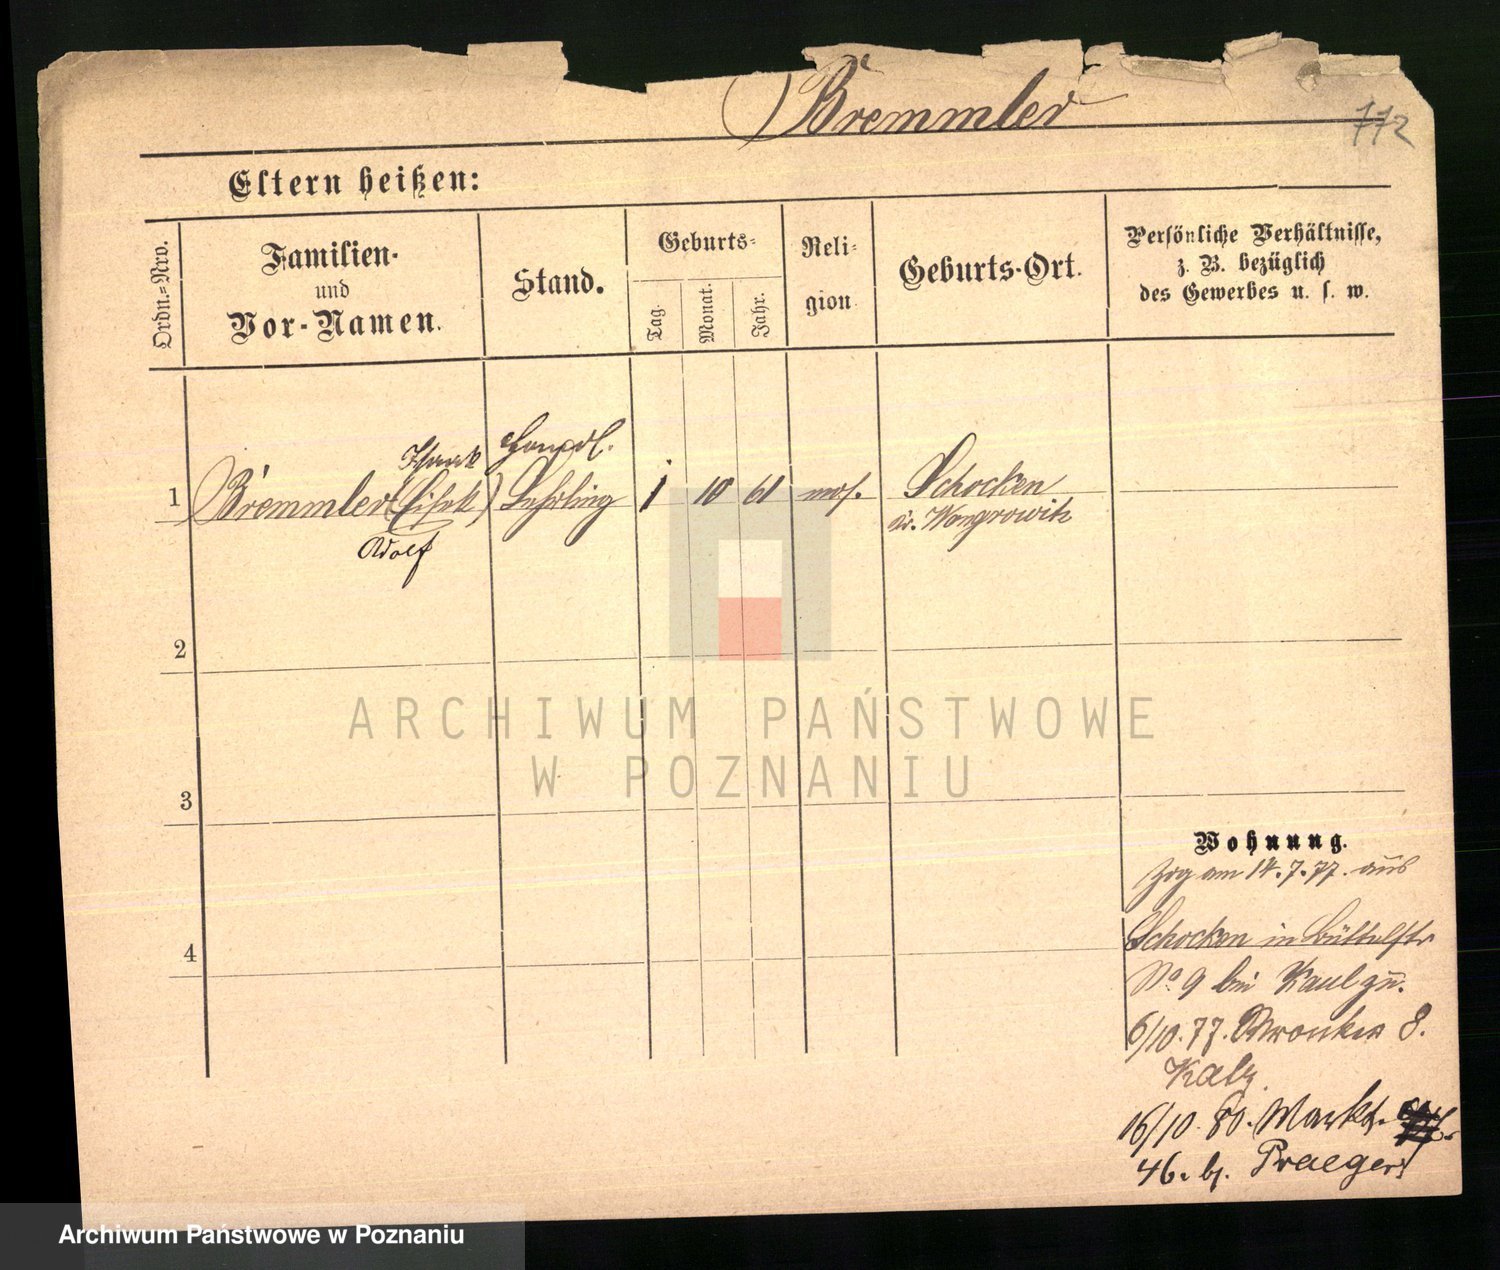 Bremmler
112
Eltern heißen:
Ordn.-Nro.
Familien-
und
Vor-Namen.
Stand.
Geburts-
Tag.
Monat.
Jahr.
Reli-
gion
Geburts-Ort.
Persönliche Verhältnisse,
z. B. bezüglich
des Gewerbes u. s. w.
Isaak
Handl.
1 Bremmler (Eisek) Lehrling 1 10 61 mos. Schocken
Kr. Wongrowitz
Adolf
2
3
4
ARCHIWUM PAŃSTWOWE
W POZNANIU
Wohnung.
Zog am 14.7.77. aus
Schocken in Büttelstr
No. 9 bei Kaul
6/10.77. Wronker 8.
Katz
16/10. 80. Markt.
46. b. Praeger
Archiwum Państwowe w Poznaniu